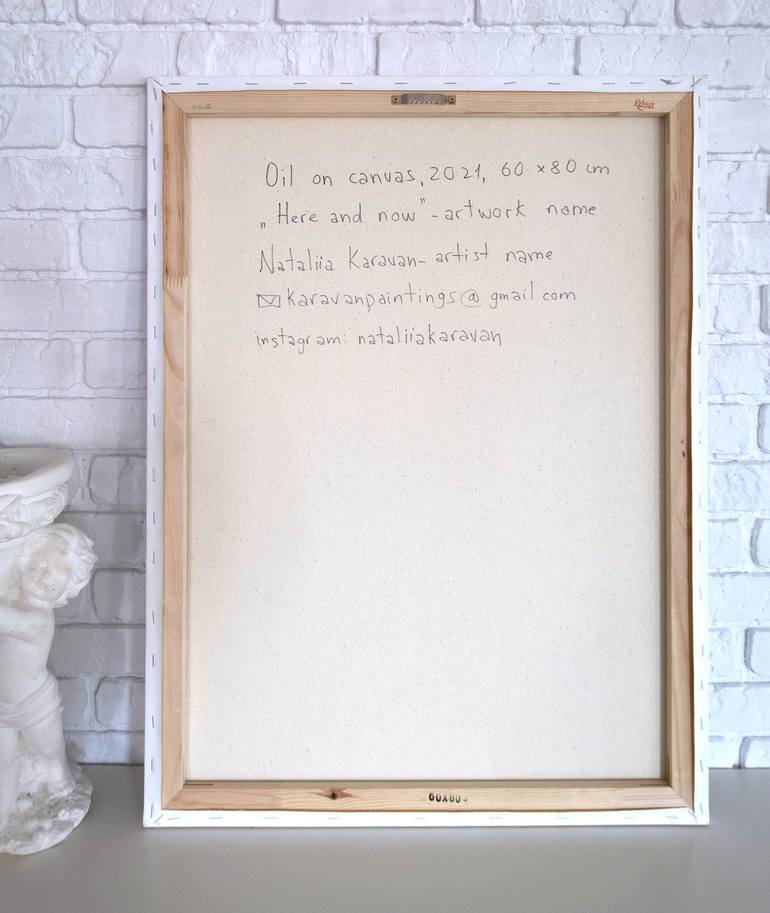 Rosa
Oil on canvas, 2021, 60 x 80 cm
„Here and now” - artwork name
Nataliia Karavan - artist name
karavanpaintings@gmail.com
instagram: nataliiakaravan
60X80